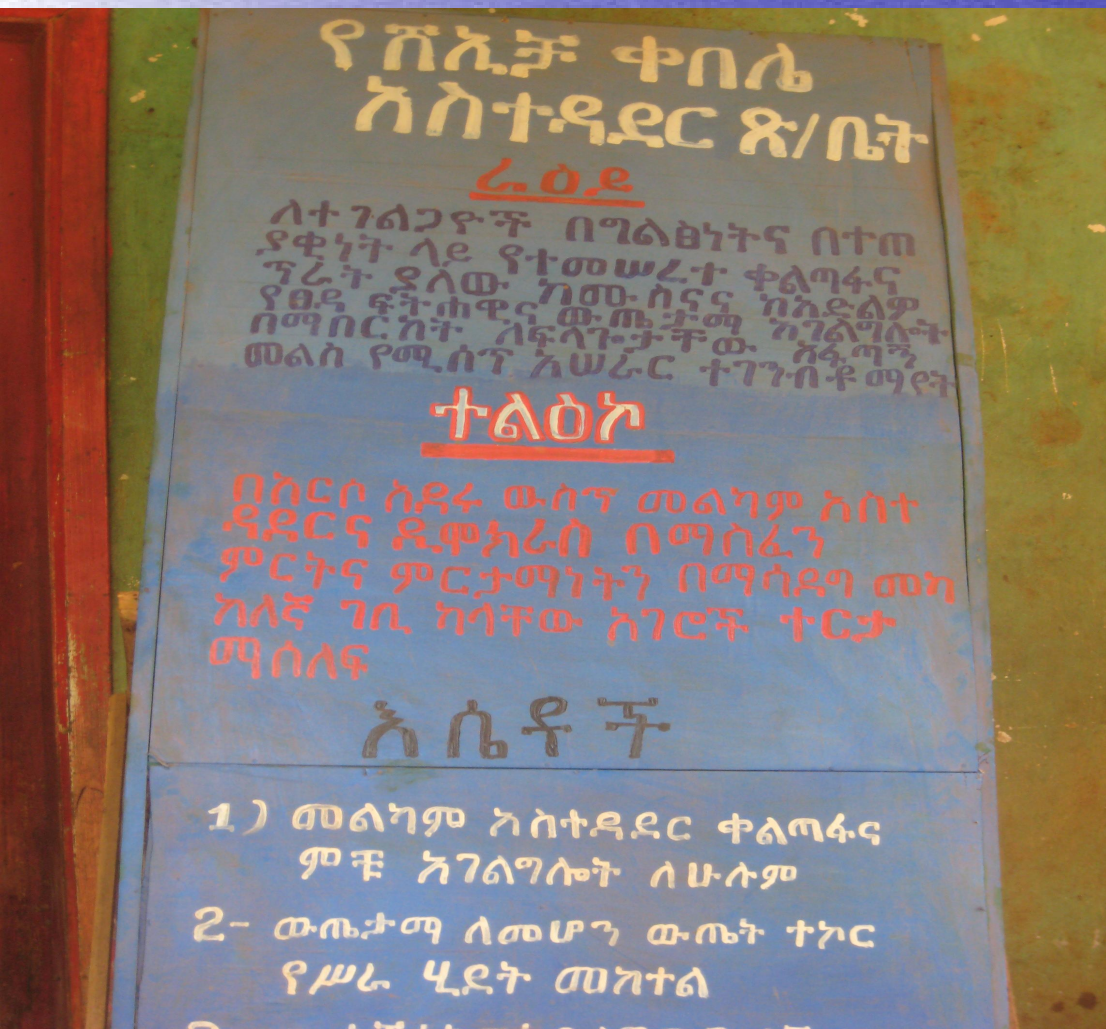 የሸኢቻ ቀበሌ
አስተዳደር ጽ/ቤት
ራዕይ
ለተገልጋዮች በግልፅነትና በተጠ
ያቂነት ላይ የተመሠረተ ቀልጣፋና
ጥራት ያለው ከሙስናና ከአድልዎ
የፀዳ ፍትሐዊና ውጤታማ አገልግሎት
በማበርከት ለፍላጐታቸው አፋጣኝ
መልስ የሚሰጥ አሠራር ተገንብቶ ማየት
ተልዕኮ
በአርሶ አደሩ ውስጥ መልካም አስተ
ዳደርና ዲሞክራሲ በማስፈን
ምርትና ምርታማነትን በማሳደግ መካ
ከለኛ ገቢ ካላቸው አገሮች ተርታ
ማሰለፍ
እሴቶች
1) መልካም አስተዳደር ቀልጣፋና
ምቹ አገልግሎት ለሁሉም
2- ውጤታማ ለመሆን ውጤት ተኮር
የሥራ ሂደት መከተል